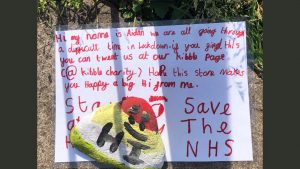 Hi my name is Aidan we are all going through
a difficult time in lockdown if you find this
you can tweet us at our kibbb Page
(@ kibbb charity.) Hope this stone makes
you Happy a big Hi from me.
St
a
HI
Save
The
NHS